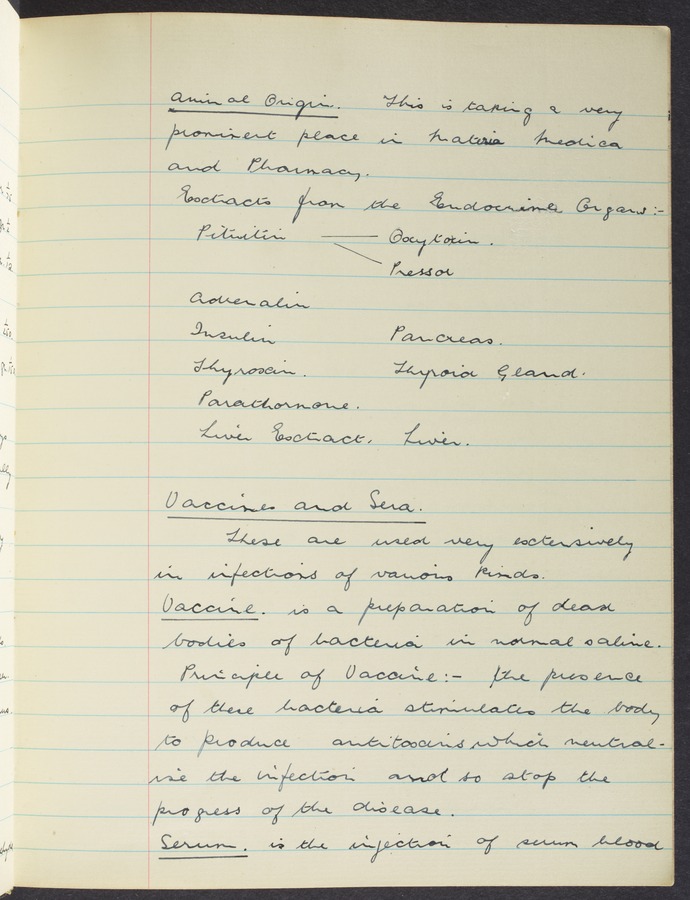 Animal Origin. This is taking a very
prominent place in Materia Medica
and Pharmacy.
Extracts from the Endocrine Organs:-
Pituitin — Oxytoxin.
Pressor
Adrenalin
Insulin Pancreas.
Thyroxin. Thyroid Gland.
Parathormone.
Liver Extract. Liver.
Vaccines and Sera.
These are used very extensively
in infections of various kinds.
Vaccine. is a preparation of dead
bodies of bacteria in normal saline.
Principle of Vaccine:- the presence
of these bacteria stimulates the body
to produce antitoxins which neutral-
ise the infection and so stop the
progress of the disease.
Serum. is the injection of serum blood